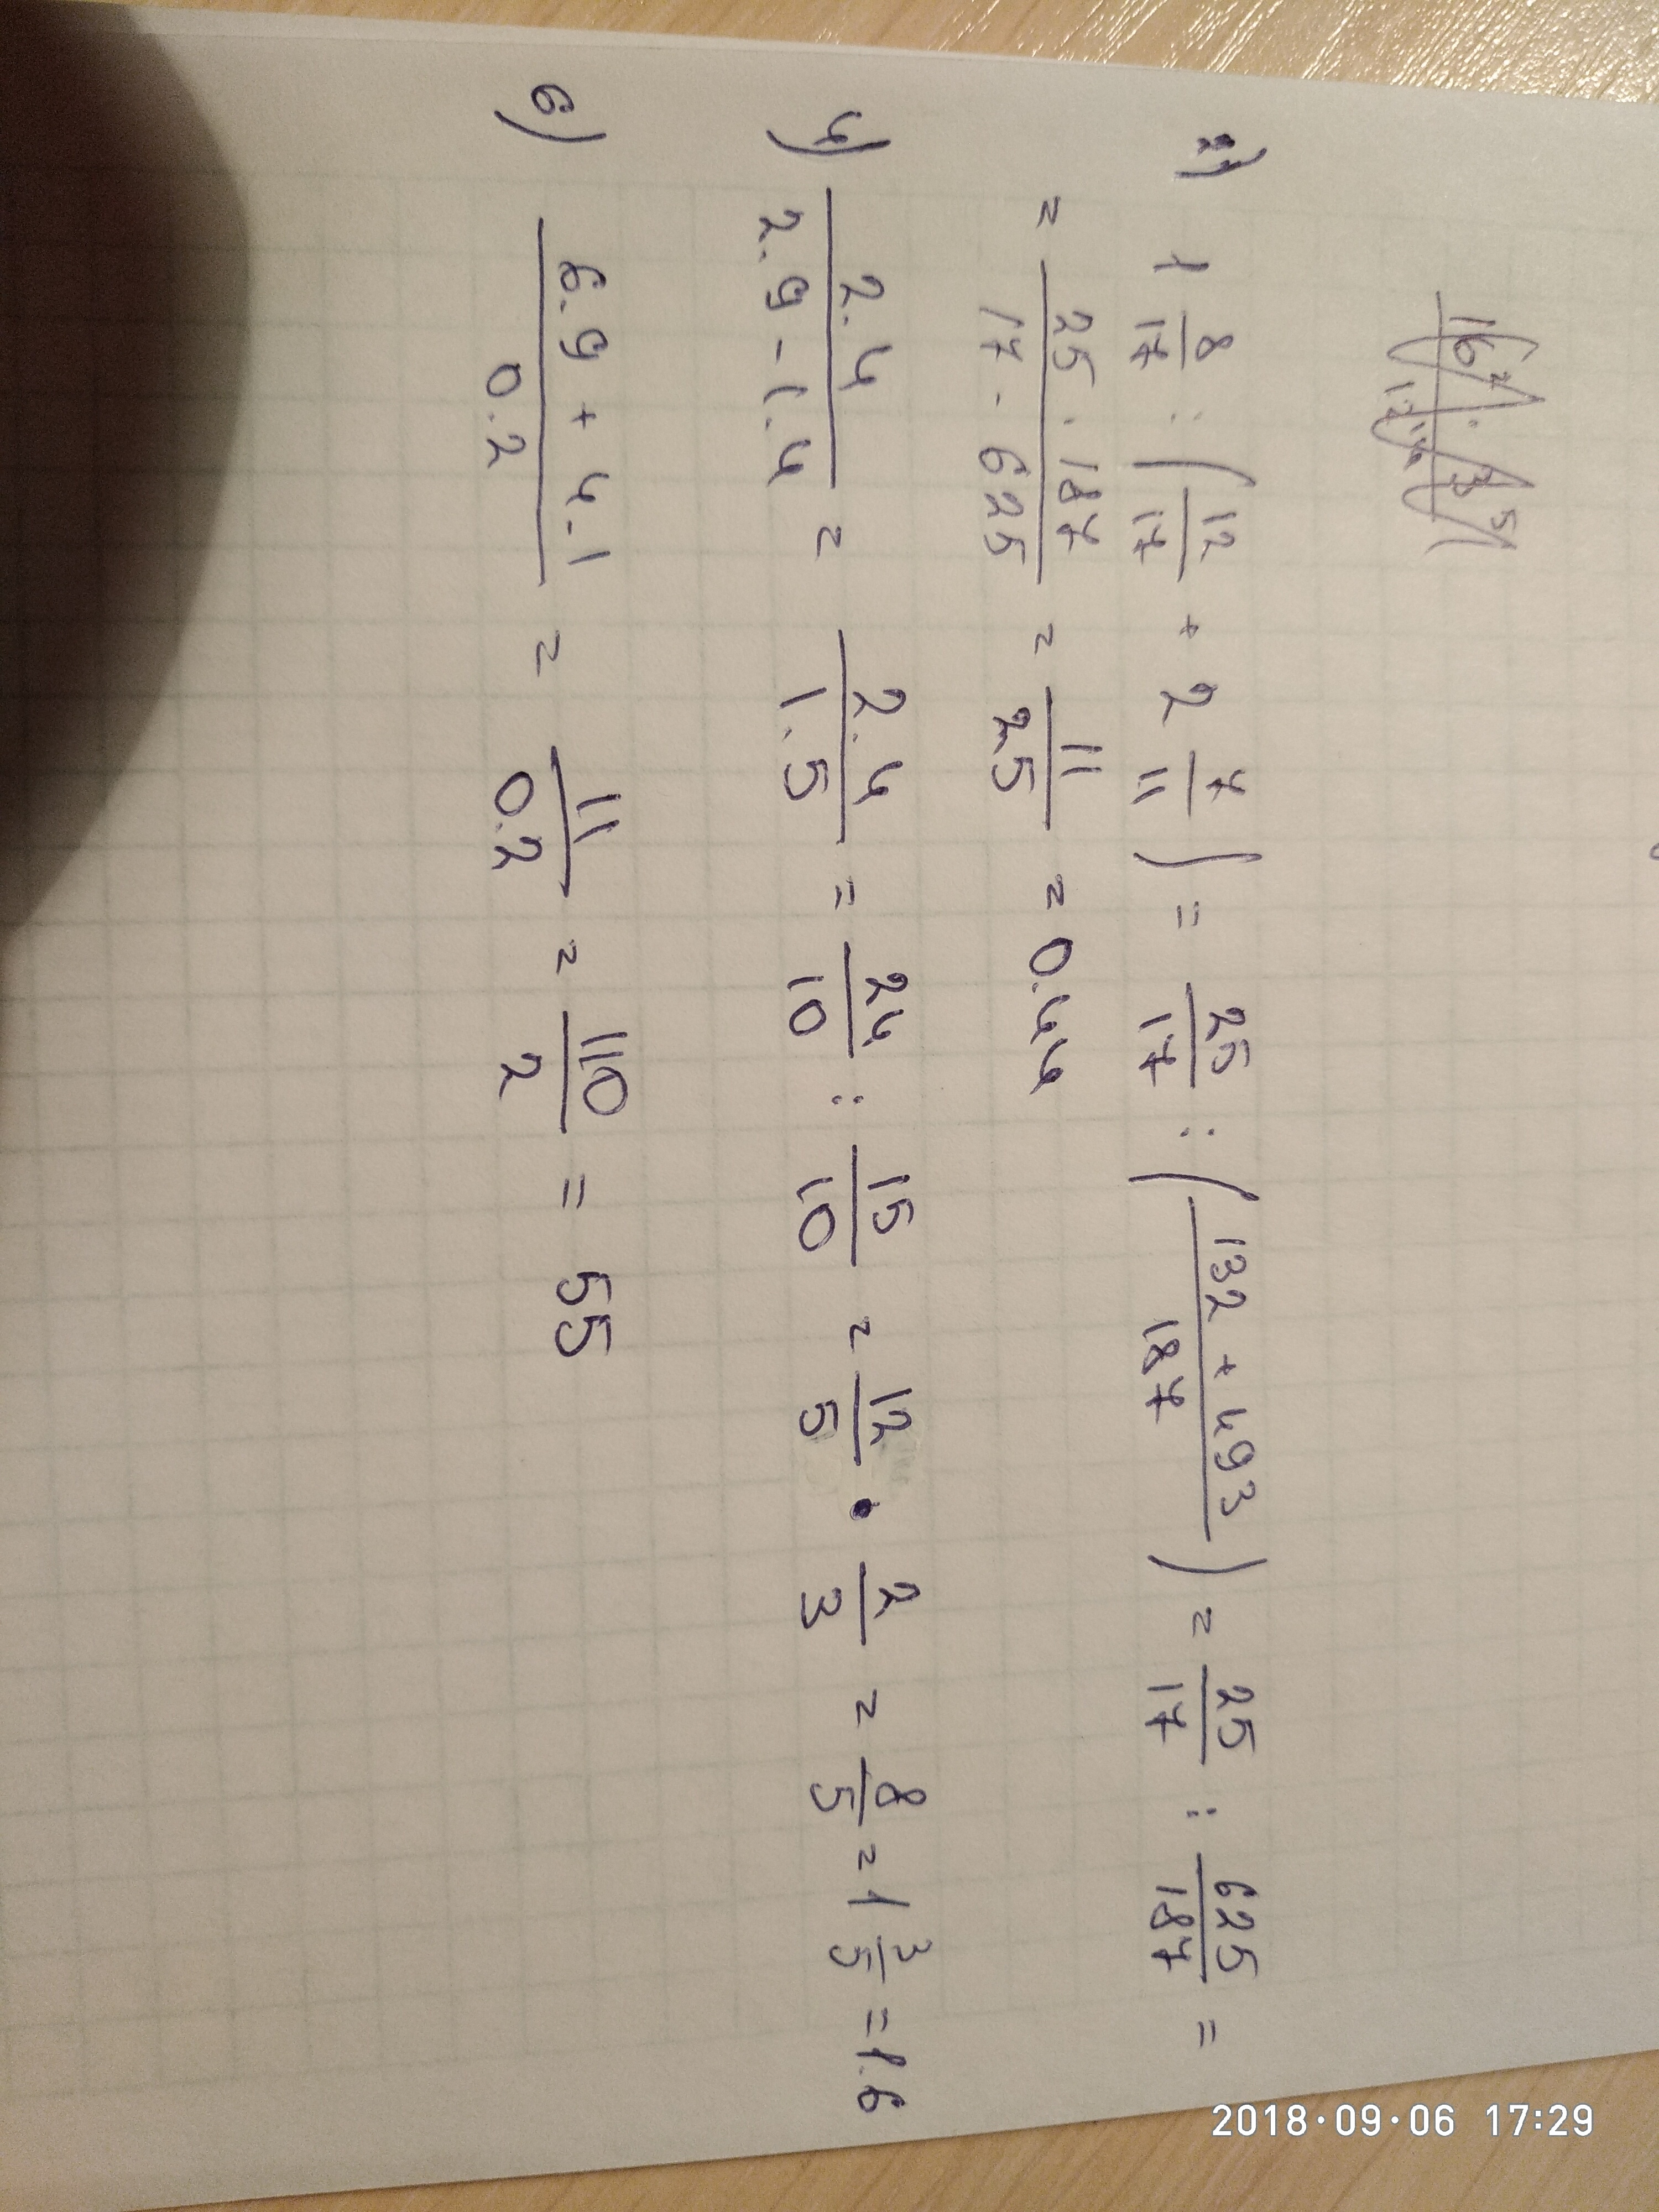 2) 1 8/17 : (12/17 + 2 7/11) = 25/17 : (132 + 493 / 187) = 25/17 : 625/187 =
= 25 · 187 / 17 · 625 = 11/25 = 0.44
4) 2.4 / 2.9 - 1.4 = 2.4 / 1.5 = 24/10 : 15/10 = 12/5 · 2/3 = 8/5 = 1 3/5 = 1.6
6) 6.9 + 4.1 / 0.2 = 11 / 0.2 = 110 / 2 = 55
2018·09·06 17:29